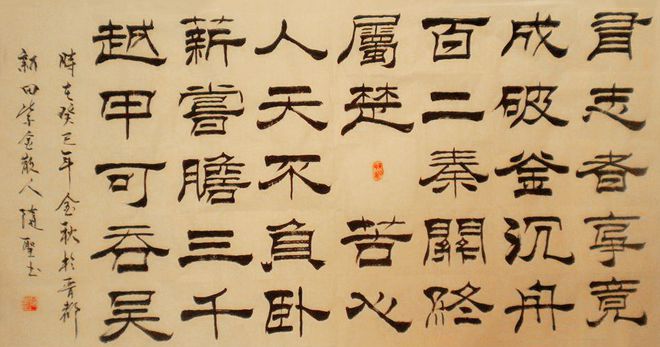 有志者事竟
成破釜沉舟
百二秦關終
屬楚苦心
人天不負卧
薪嘗膽三千
越甲可吞吳
時在癸巳年金秋於晋都
新田紫金散人